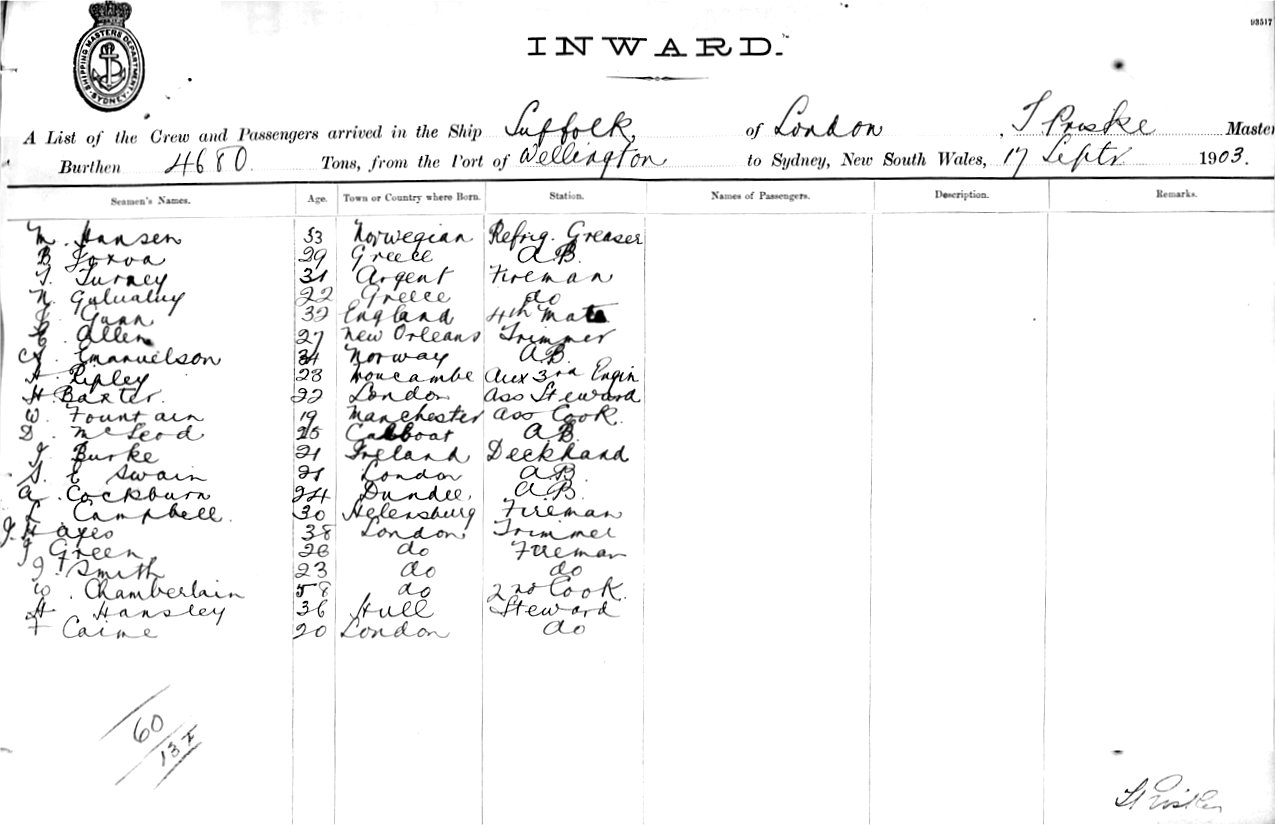 93517
SHIPPING MASTERS DEPARTMENT SYDNEY
INWARD.
A List of the Crew and Passengers arrived in the Ship Suffolk of London, Master
Burthen 4680 Tons, from the Port of Wellington to Sydney, New South Wales, 17 Septr 1903.
Seamen's Names. Age. Town or Country where Born. Station. Names of Passengers. Description. Remarks.
M. Hansen 33 Norwegian Refrig. Greaser
B 29 Greece A.B.
T. Turney 31 Argent Fireman
N. 22 Greece do
Gunn 32 England 4th Mate
Allen 27 New Orleans Trimmer
Emanuelson 34 Norway A.B.
A. Ripley 23 Aux 3rd Engin
H. Baxter. 22 London Ass Steward
W. Fountain 19 Manchester Ass Cook.
D. McLeod 25 A.B.
J Burke 21 Ireland Deckhand
S. E Swain 21 London A.B.
A. Cockburn 24 Dundee, A.B.
L Campbell. 30 Helensburg Fireman
J. Hayes 38 London Trimmer
J Green 28 do Fireman
J. Smith 23 do do
W. Chamberlain 58 do 2nd Cook.
H Hansley 36 Hull Steward
F Caine 20 London do
60